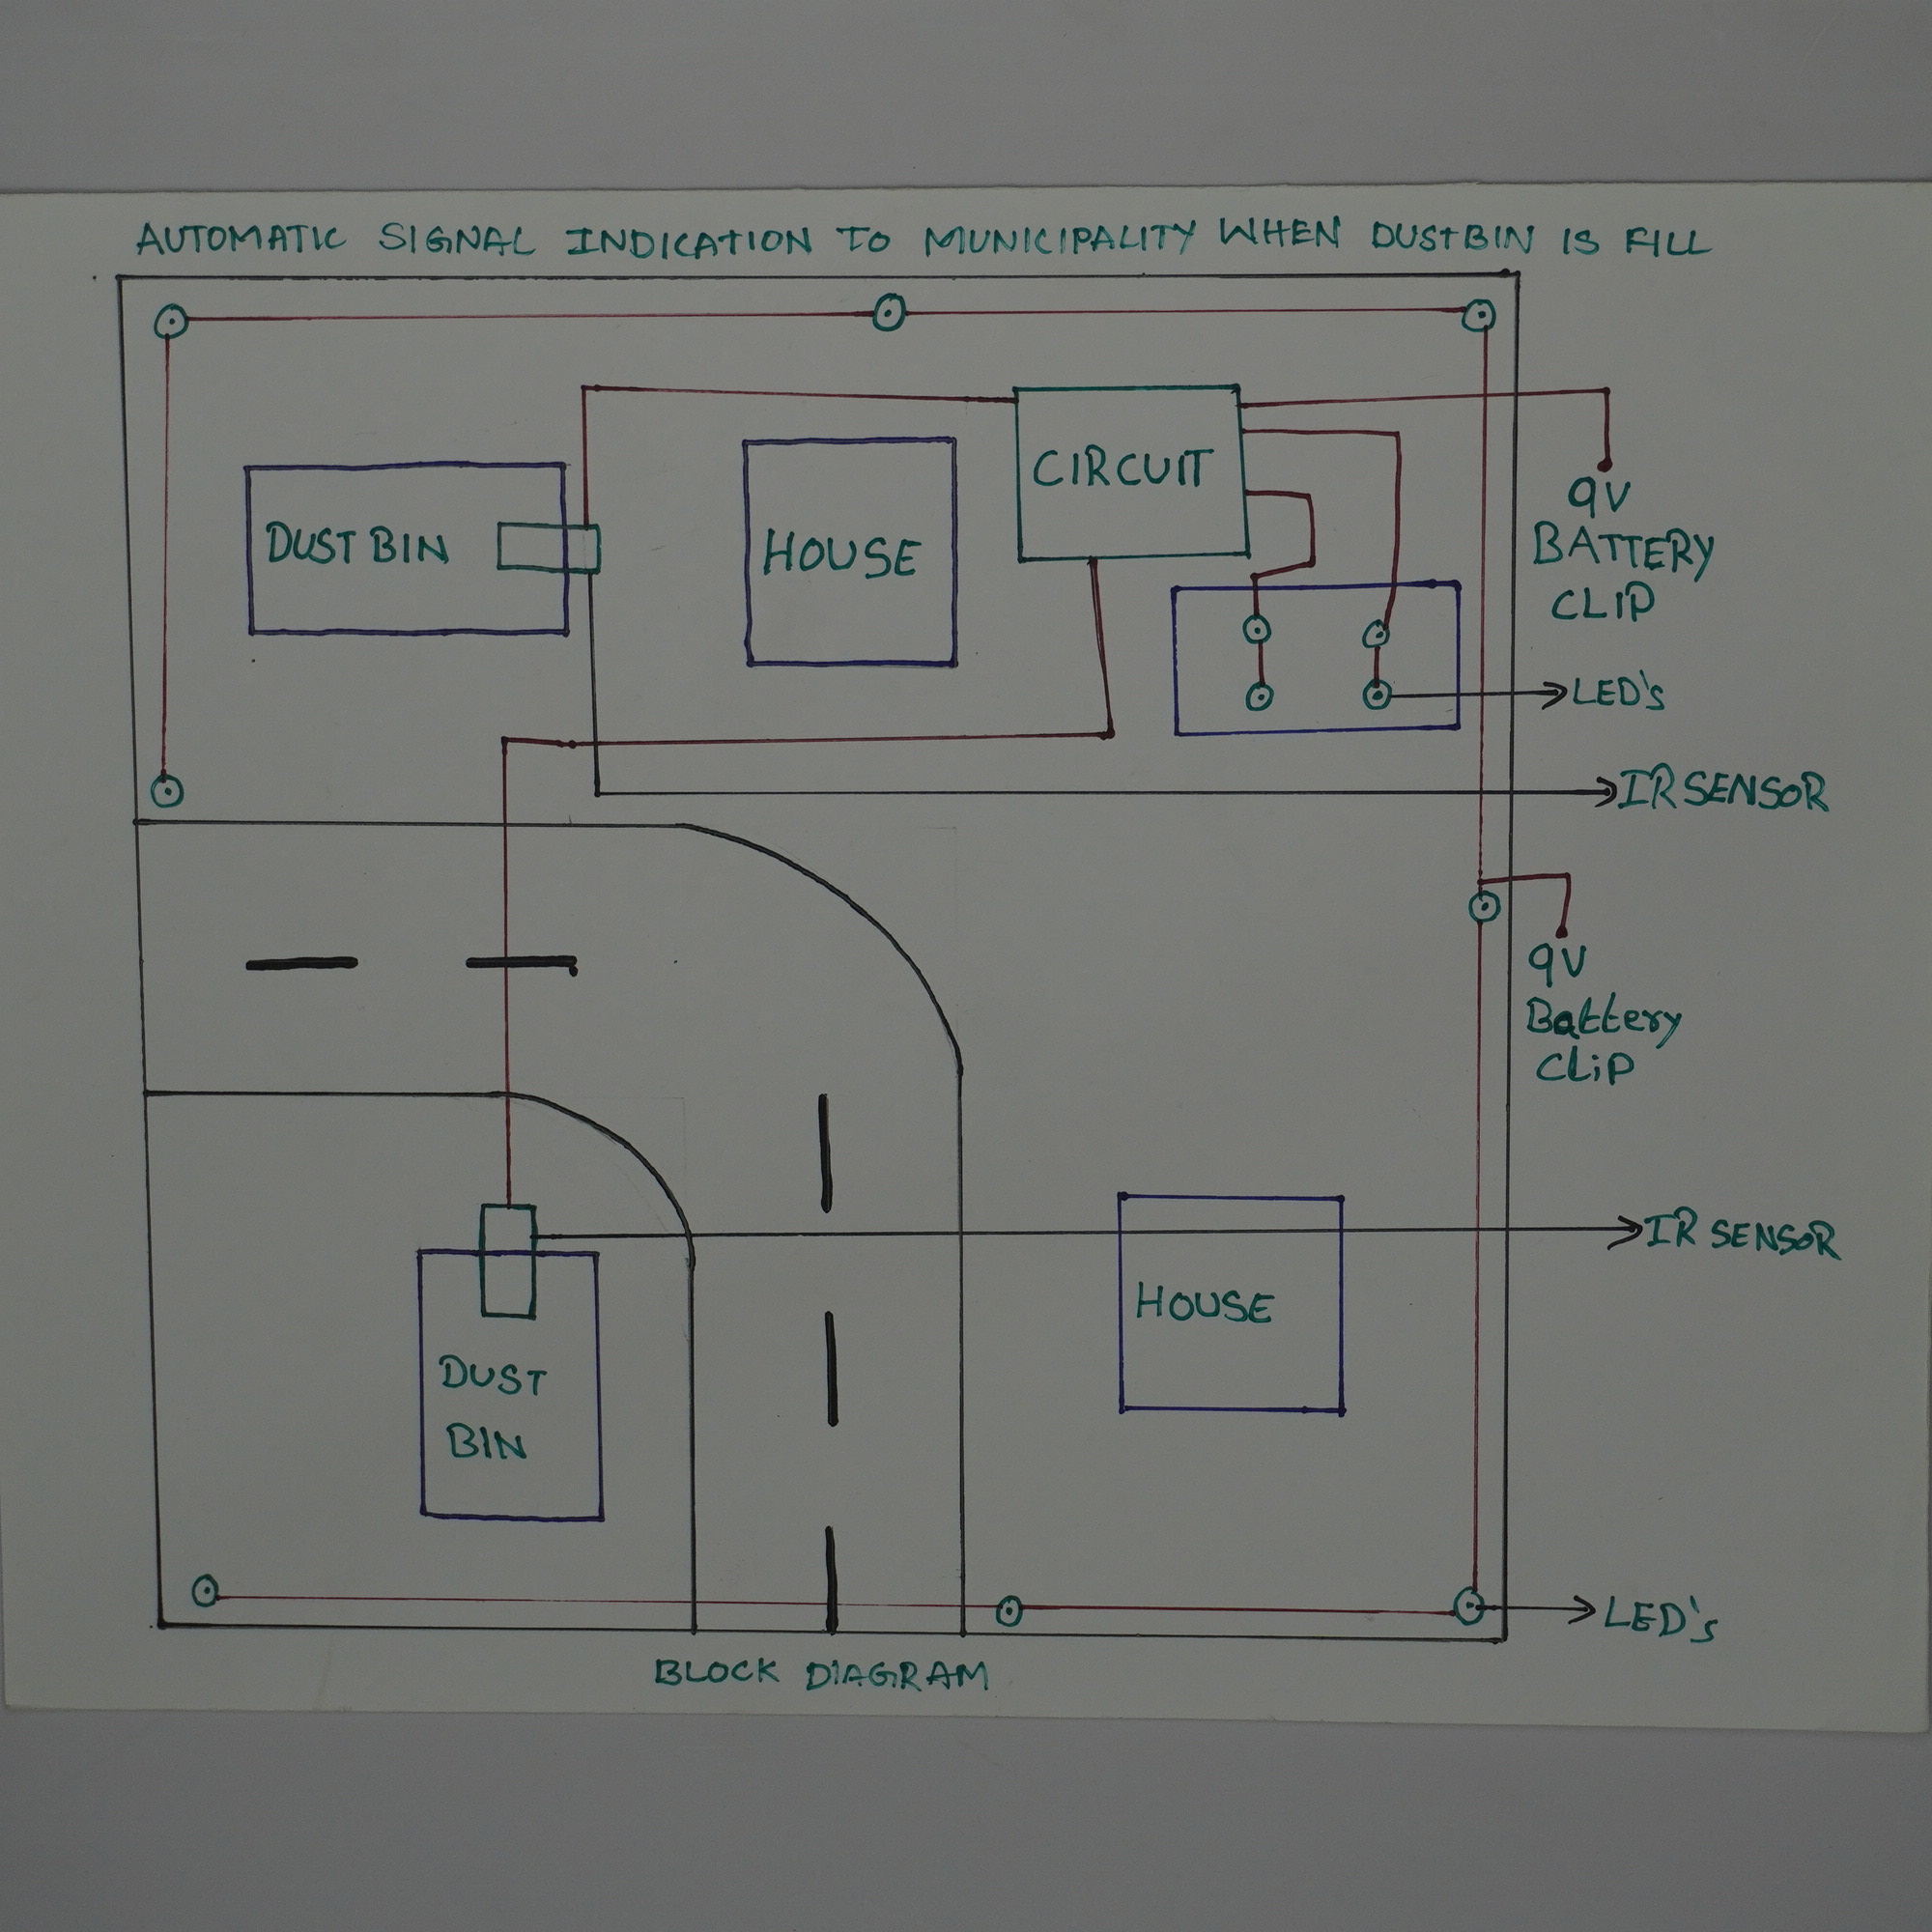 AUTOMATIC SIGNAL INDICATION TO MUNICIPALITY WHEN DUSTBIN IS FILL
CIRCUIT
DUST BIN
HOUSE
9V
BATTERY
CLIP
LED's
IR SENSOR
9V
Battery
CLiP
IR SENSOR
HOUSE
DUST
BIN
LED's
BLOCK DIAGRAM